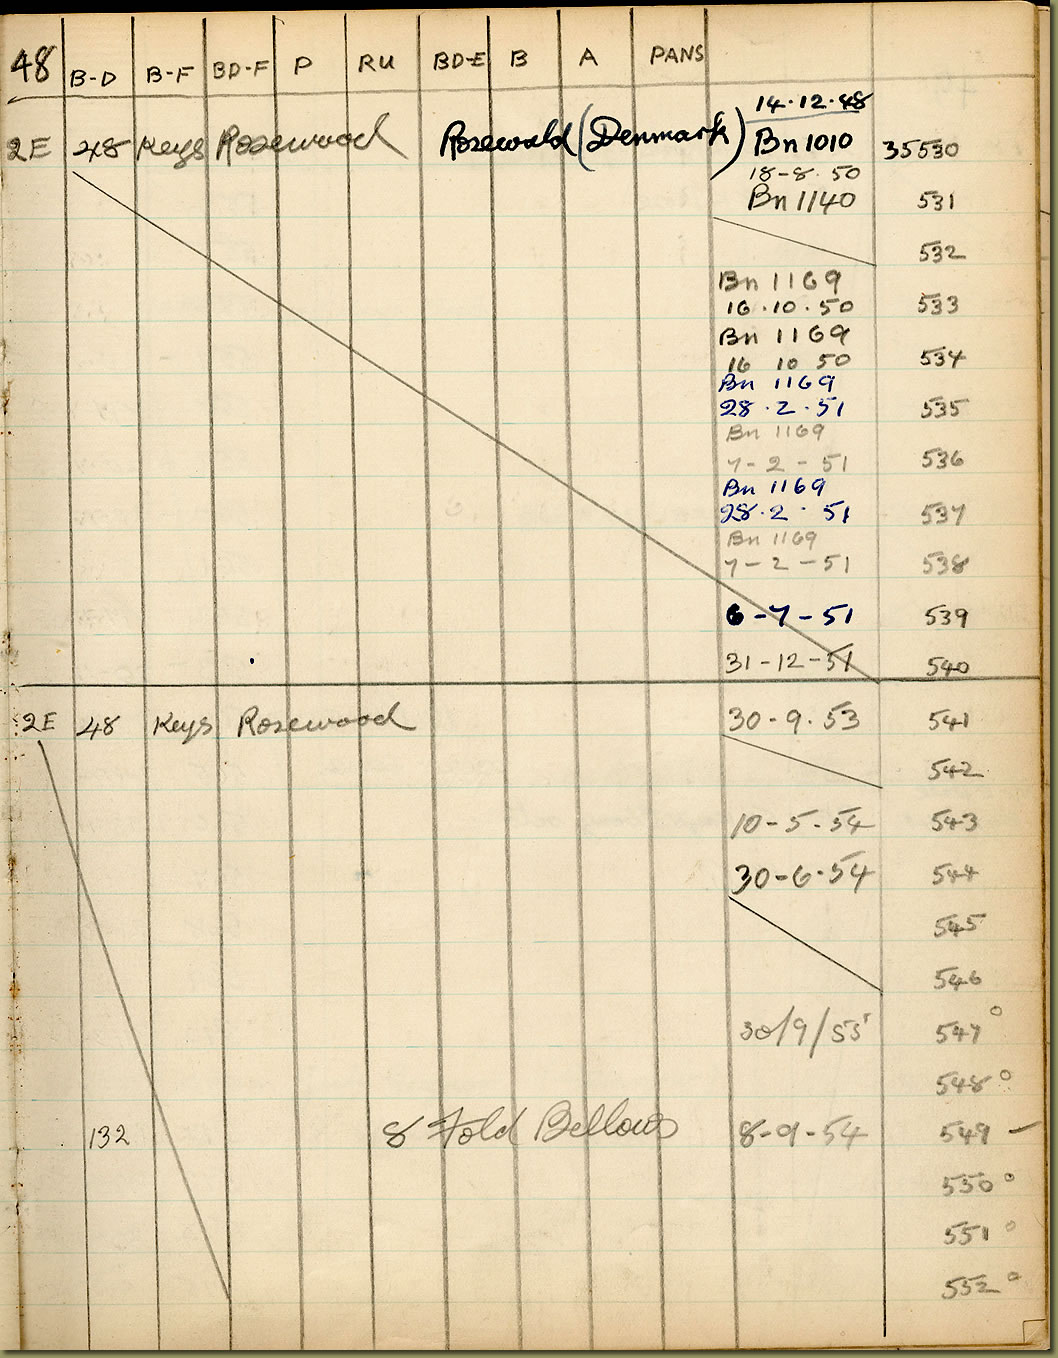 48 B-D B-F BD-F P RU BD-E B A PANS
14·12·48
2E 48 Keys Rosewood Rosewald (Denmark) Bn 1010 35530
18-8·50
Bn 1140 531
532
Bn 1169
16·10·50 533
Bn 1169
16 10 50 534
Bn 1169
28·2·51 535
Bn 1169
7-2-51 536
Bn 1169
28·2·51 537
Bn 1169
7-2-51 538
6-7-51 539
31-12-51 540
2E 48 Keys Rosewood 30-9·53 541
542
10-5-54 543
30-6·54 544
545
546
30/9/55 547°
548°
132 8 Fold Bellows 8-9-54 549 –
550°
551°
552°